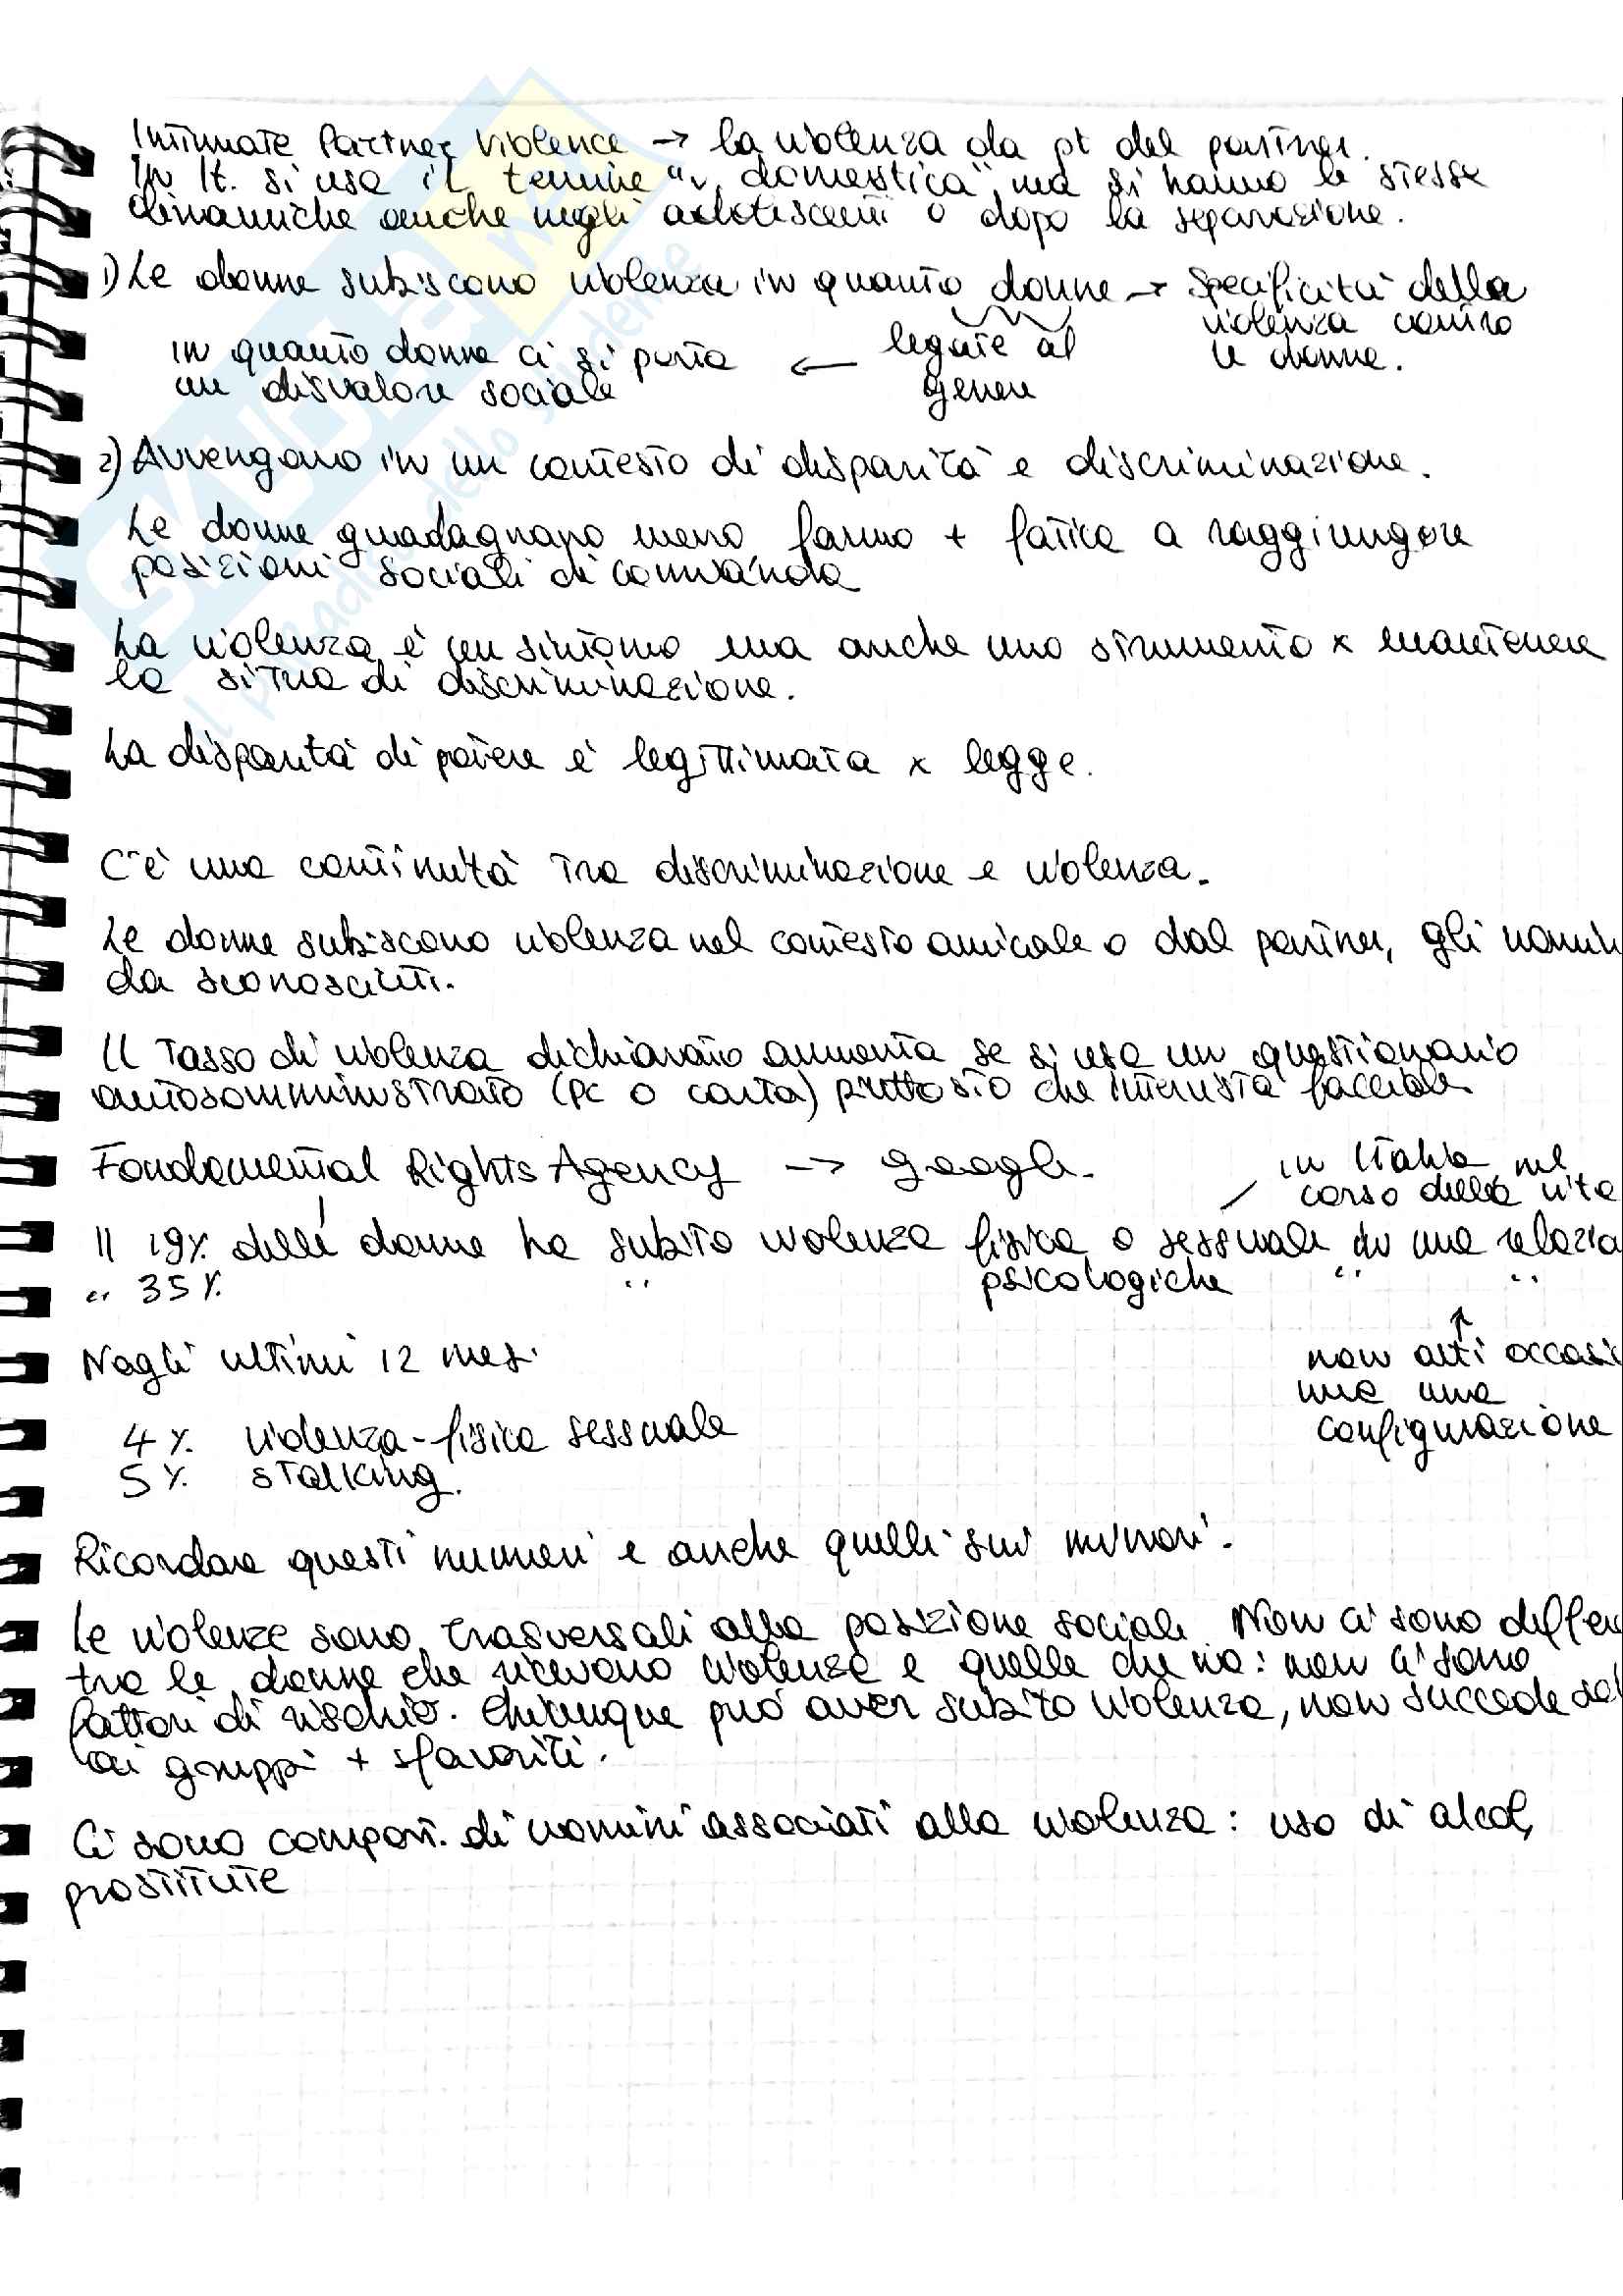 Intimate Partner Violence → la violenza da pt del partner.
In It. si usa il termine "v. domestica", ma si hanno le stesse
dinamiche anche negli adolescenti o dopo la separazione.
1) Le donne subiscono violenza in quanto donne → Specificità della
violenza contro
le donne.
legate al
genere
in quanto donna ci si porta ←
un disvalore sociale
2) Avvengono in un contesto di disparità e discriminazione.
Le donne guadagnano meno, fanno + fatica a raggiungere
posizioni sociali di comando
La violenza è un sintomo ma anche uno strumento x mantenere
la situa di discriminazione.
La disparità di potere è legittimata x legge.
C'è una continuità tra discriminazione e violenza.
Le donne subiscono violenza nel contesto amicale o dal partner, gli uomin
da sconosciuti.
Il tasso di violenza dichiarato aumenta se si usa un questionario
autosomministrato (pc o carta) piuttosto che intervista
Fondamental Rights Agency → google.
in Italia nel
corso della vita
Il 19% delle donne ha subito violenza fisica o sessuale in una relazio
" 35% " psicologiche " "
↑
non atti occasi
ma una
configurazione
Negli ultimi 12 mesi
4% violenza-fisica sessuale
5% stalking.
Ricordare questi numeri e anche quelli sui minori.
Le violenze sono trasversali alla posizione sociale. Non ci sono differe
tra le donne che ricevono violenza e quelle che no: non ci sono
fattori di rischio. Chiunque può aver subito violenza, non succede sol
ai gruppi + sfavoriti.
Ci sono comport. di uomini associati alla violenza: uso di alcol,
prostitute
STUDIA
il paradiso dello studente